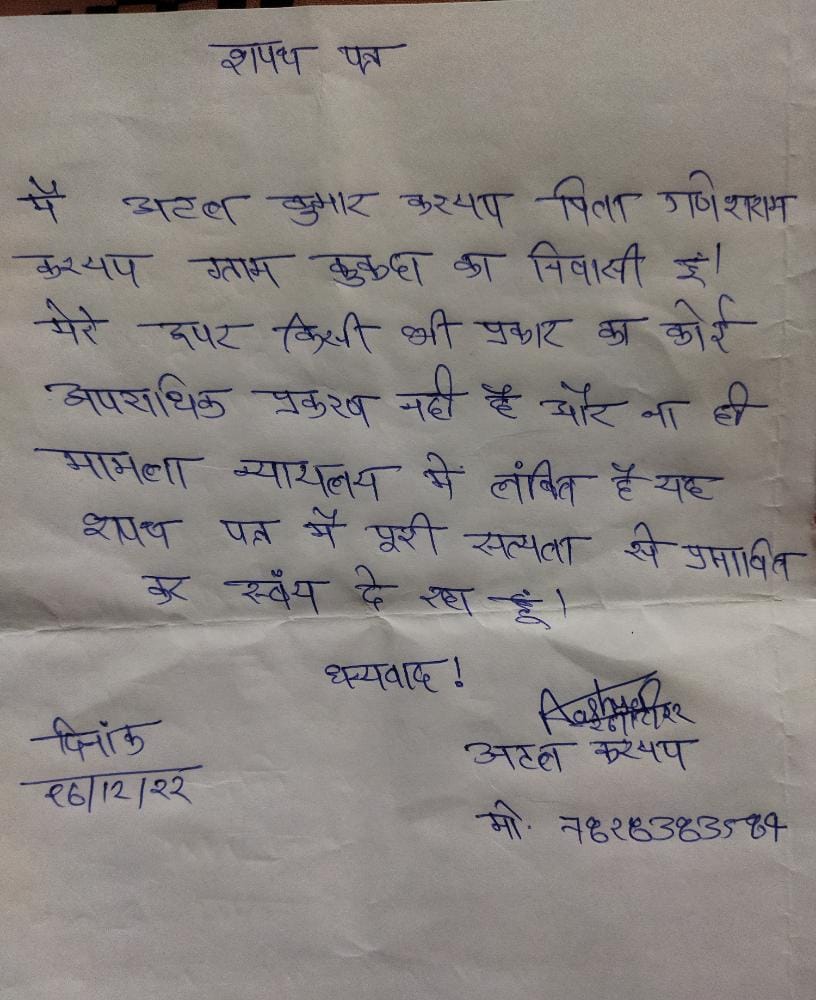 शपथ पत्र
मैं अटल कुमार कश्यप पिता गणेशराम
कश्यप ग्राम कुकदा का निवासी हूं।
मेरे उपर किसी भी प्रकार का कोई
अपराधिक प्रकरण नही है और ना ही
मामला न्यायलय में लंबित है यह
शपथ पत्र मैं पूरी सत्यता से प्रमाणित
कर स्वंय दे रहा हूं।
धन्यवाद!
दिनांक
अटल कश्यप
26/12/22
मो.